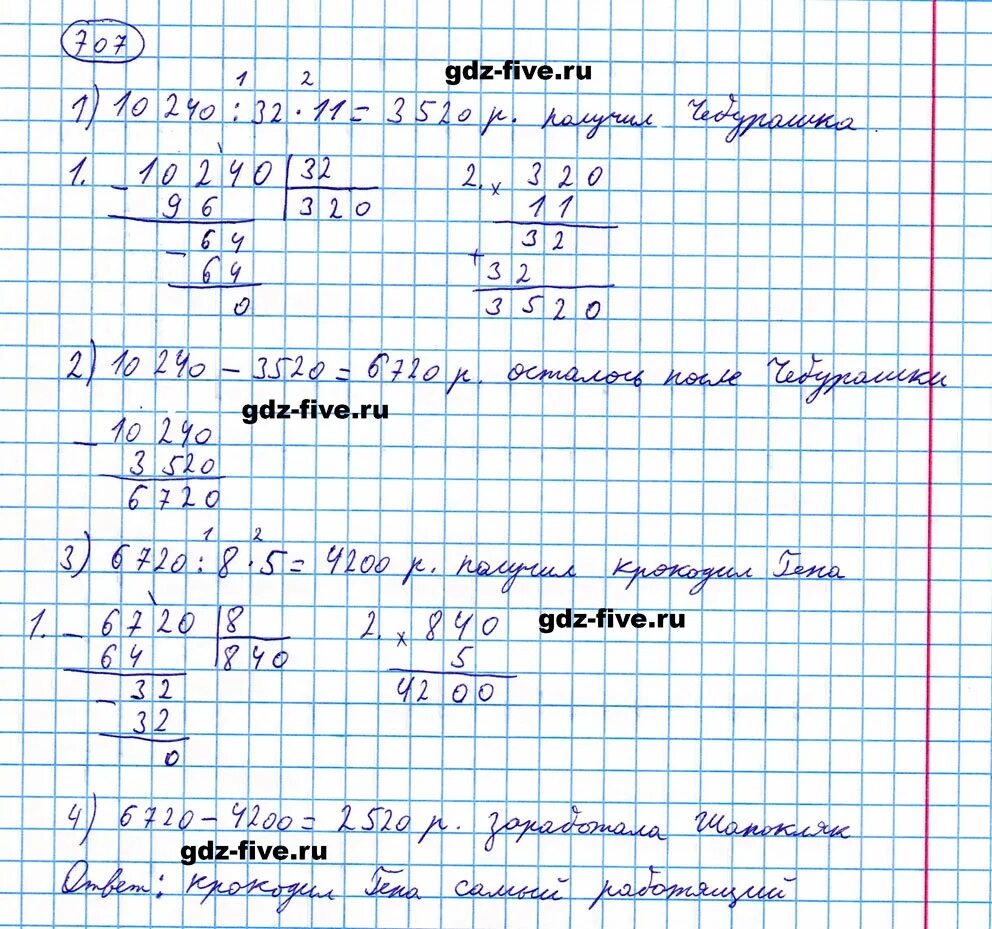 707
gdz-five.ru
1 2
1) 10 240 : 32 · 11 = 3520 р. получил Чебурашка
1. - 10240 | 32 2. × 320
96 | 320 11
- 64 32
64 + 32
0 3520
2) 10 240 - 3520 = 6720 р. осталось после Чебурашки
gdz-five.ru
- 10 240
3 520
6 720
1 2
3) 6720 : 8 · 5 = 4200 р. получил крокодил Гена
1. - 6720 | 8 2. × 840 gdz-five.ru
64 | 840 5
- 32 4200
32
0
4) 6720 - 4200 = 2520 р. заработала Шапокляк
gdz-five.ru
Ответ: крокодил Гена самый работящий